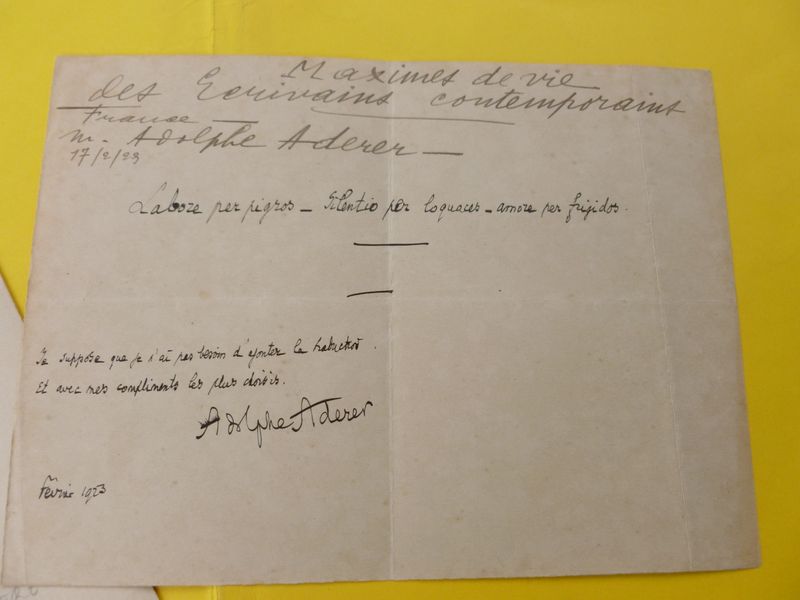 Maximes de vie
des Ecrivains contemporains
France —
M. Adolphe Aderer —
17/2/23
Labore per pigros — Silentio per loquaces — amore per frigidos.
Je suppose que je n'ai pas besoin d'ajouter la traduction.
Et avec mes compliments les plus choisis.
Adolphe Aderer
Février 1923